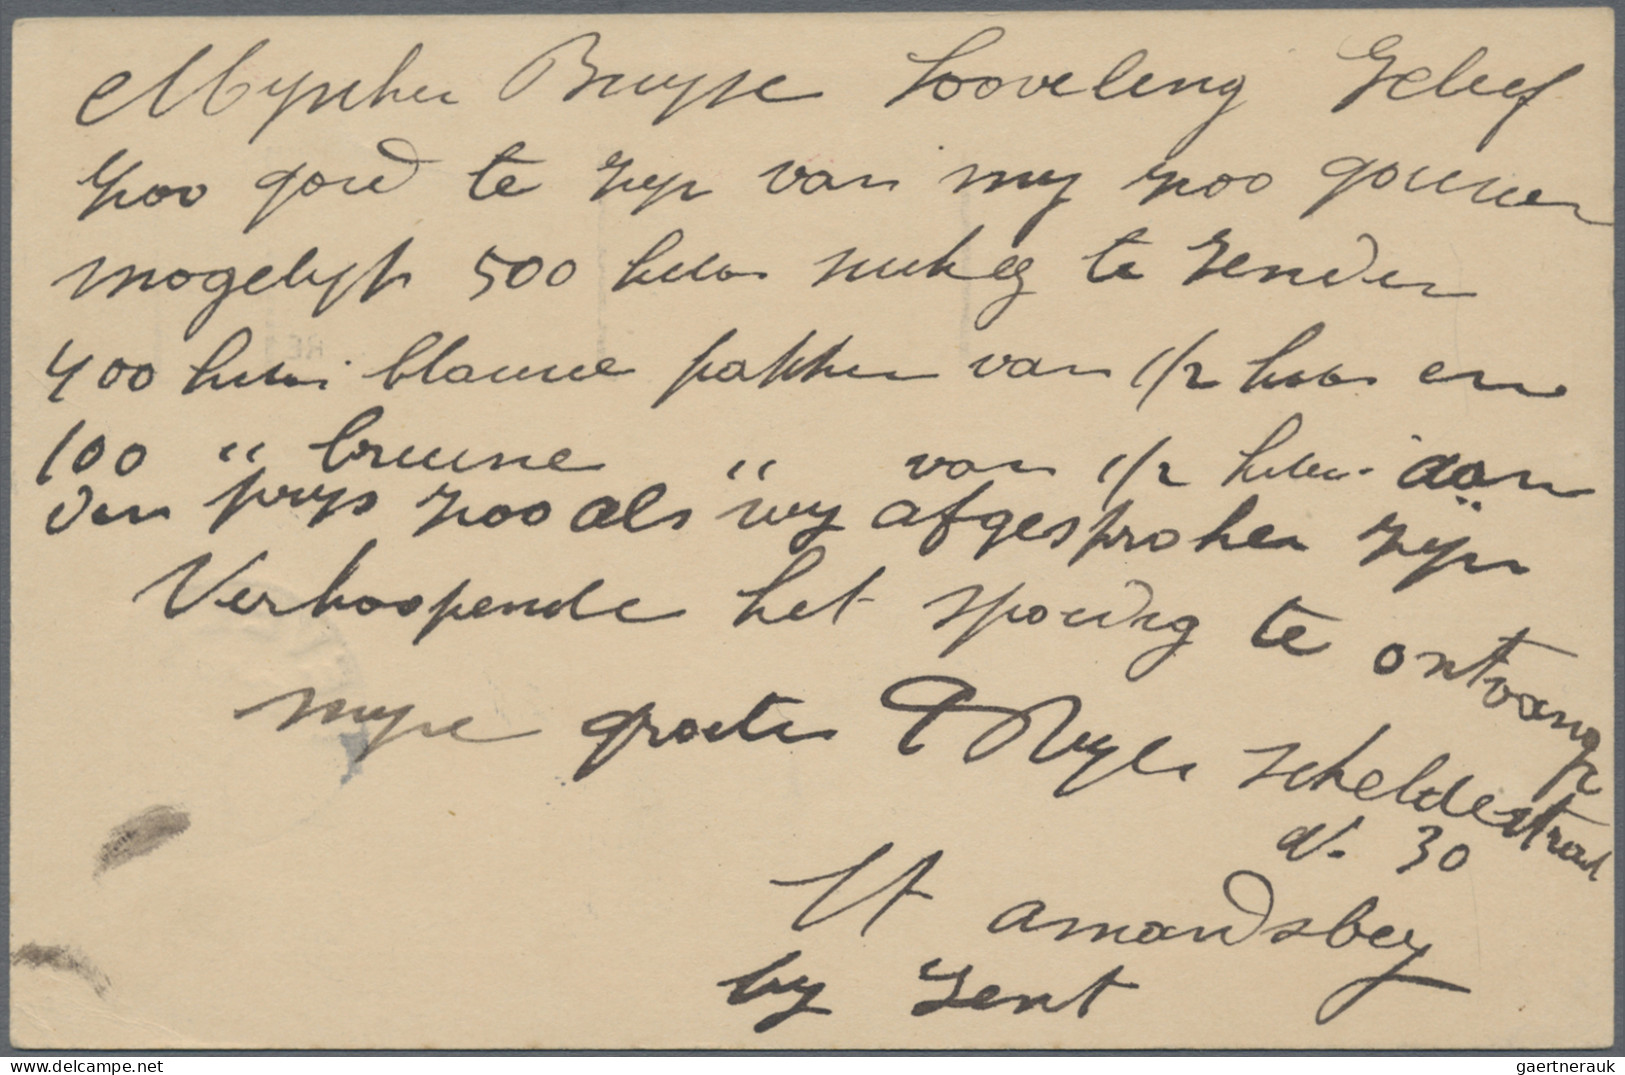 Mynheer Buysse Looveling Gelief
zoo goed te zijn van my zoo gauwe
mogelijk 500 kilos suikeg te zenden
400 kilos blauwe pakken van 1/2 kilos en
100 " bruine " van 1/2 kilos aan
den prijs zooals wij afgesproken zijn
Verhoopende het spoedig te ontvange
myne groeten scheldestraat
N. 30
St amandsberg
by Gent
gaertnerauk